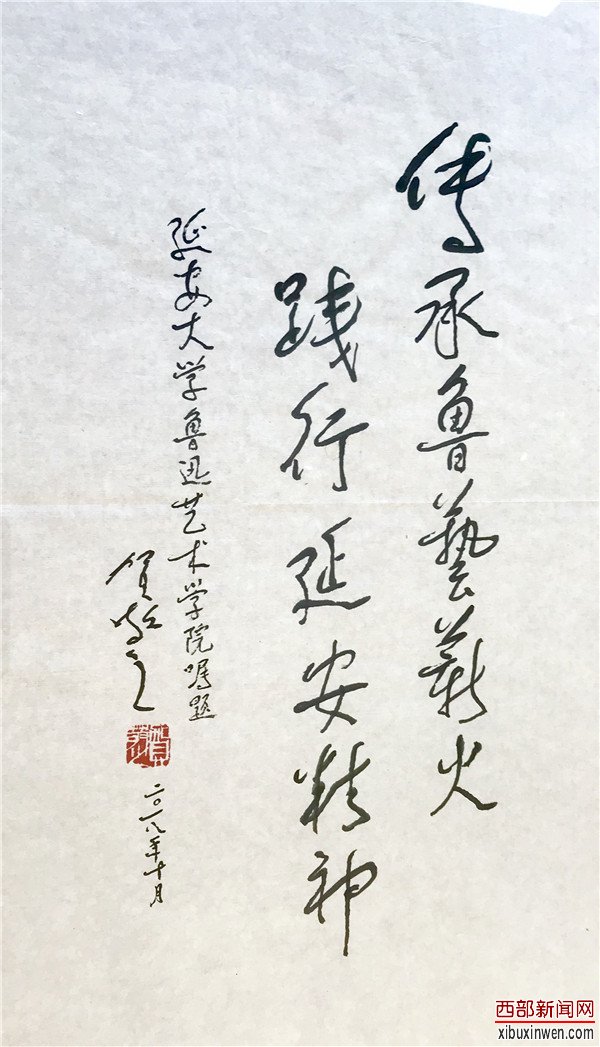 傳承鲁藝薪火
践行延安精神
延安大学鲁迅艺术学院嘱题
贺敬之
二〇一八年十月
西部新闻网
xibuxinwen.com